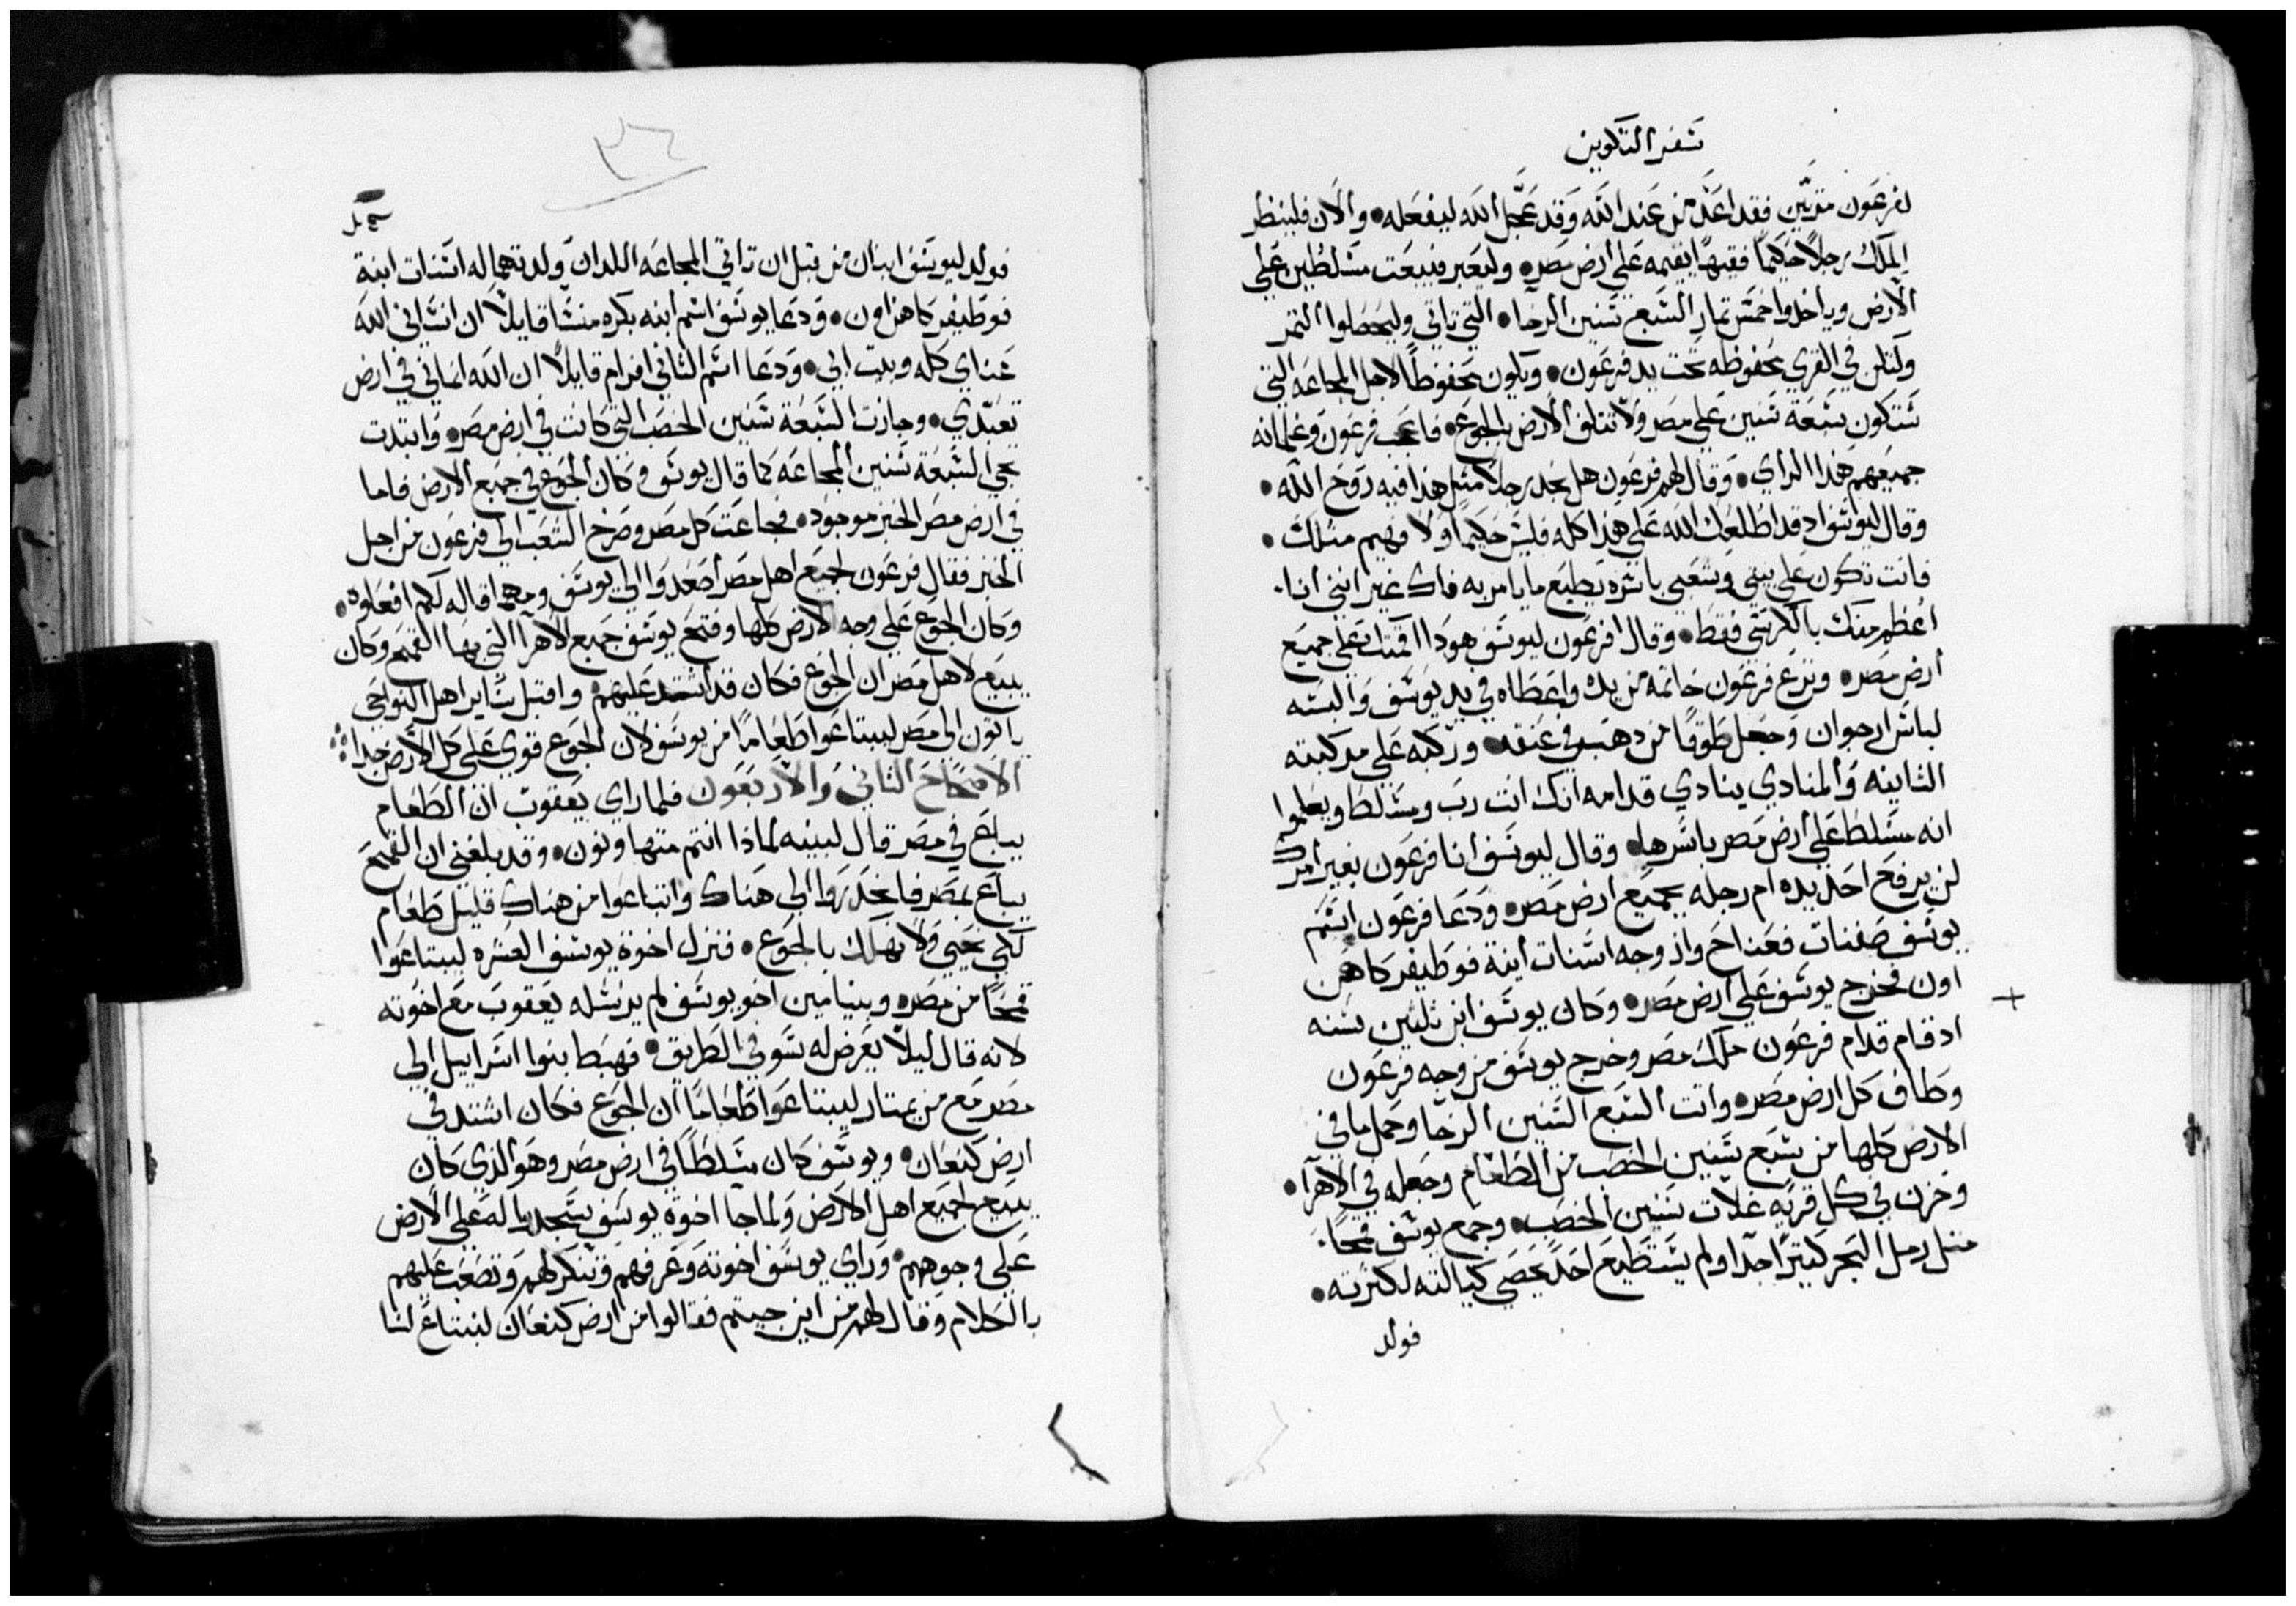 سفر التكوين
لفرعون مرتين فقد اعد من عند الله وقد عجل الله ليفعله • والان فلينظر
الملك رجلاً حكيماً فقيهاً يقيمه علي أرض مصر • وليعبر فيبعت مسلطين علي
الأرض وياخدوا خمس تمار السبع سنين الرخا • التي تاتي وليحصلوا التمر
ولتكن في القري محفوظه تحت يد فرعون • ويكون محفوظاً لاجل المجاعه التي
ستكون سبعة سنين علي مصر ولا تتلف الأرض بالجوع • فاعجب فرعون وغلمانه
جميعهم هذا الراي • وقال لهم فرعون هل نجد رجلاً مثل هذا فيه روح الله •
وقال ليوسف اد قد اطلعك الله علي هذا كله فليس حكيماً ولا فهيم مثلك •
فانت تكون علي بيتي وشعبي باسره يطيع ما يامر به فاك غير انني أنا •
أعظم منك بالكرسي فقط • وقال فرعون ليوسف هودا اقمتك علي جميع
أرض مصر • ونزع فرعون خاتمه من يده واعطاه في يد يوسف والبسه
لباس ارجوان وجعل طوقاً من دهب في عنقه • وركبه علي مركبته
التانيه والمنادي ينادي قدامه انك انت رب ومسلط ويعلموا
انه مسلط علي أرض مصر باسرها • وقال ليوسف أنا فرعون بغير أمرك
لن يرفع احد يده ام رجله بجميع ارض مصر • ودعا فرعون اسم
يوسف صفنات فعناخ وازوجه اسنات أبنة فوطيفر كاهن
اون فخرج يوسف علي أرض مصر • وكان يوسف ابن ثلثين سنه
اد قام قدام فرعون ملك مصر وخرج يوسف من وجه فرعون
وطاف كل ارض مصر • واتت السبع السنين الرخا وحمل ما في
الارض كلها من سبع سنين الخصب من الطعام وجعله في الأهرآ •
وخزن في كل قريه غلات سنين الخصب • وجمع يوسف قمحاً •
مثل رمل البحر كتيراً جدا ولم يستطيع احد يحصي كيالته لكثرته •
فولد
٣٦
فولد ليوسف ابنان من قبل ان تاتي المجاعه اللدان ولدتهما له اسنات ابنة
فوطيفر كاهن اون • ودعا يوسف اسم ابنه بكره منسا قايلاً ان انساني الله
عناي كله وبيت ابي • ودعا اسم الثاني افرام قايلاً ان الله انماني في ارض
تعبدي • وجازت السبعة سنين الخصب التي كانت في ارض مصر • وابتدت
تجي السبعة سنين المجاعه كما قال يوسف وكان الجوع في جميع الارض فاما
في ارض مصر الخبز موجود • فجاعت كل مصر وصرخ الشعب الي فرعون من اجل
الخبز فقال فرعون لجميع اهل مصر أصعدوا الي يوسف ومهما قاله لكم افعلوه •
وكان الجوع علي وجه الأرض كلها وفتح يوسف جميع الأهرآ التي بها القمح وكان
يبيع لاهل مصر ان الجوع فكان قد اشتد عليهم • واقبل ساير اهل النواحي
ياتون الي مصر ليبتاعوا طعاماً من يوسف لان الجوع قوي علي كل الأرض جدا
الأصحاح الثاني والأربعون فلما راي يعقوب ان الطعام
يباع في مصر قال لبنيه لماذا انتم متهاونون • وقد بلغني ان القمح
يباع بمصر فانحدروا الي هناك وابتاعوا من هناك قليل طعام
لكي نحيي ولا نهلك بالجوع • فنزل اخوة يوسف العشره ليبتاعوا
قمحاً من مصر • وبنيامين اخو يوسف لم يرسله يعقوب مع اخوته
لانه قال ليلا يعرض له سو في الطريق • فهبط بنوا اسراييل الي
مصر مع من يمتار ليبتاعوا طعاماً ان الجوع فكان اشتد في
ارض كنعان • ويوسف كان مسلطاً في ارض مصر وهو الذي كان
يبيع لجميع اهل الأرض ولما جا اخوة يوسف سجدوا له علي الأرض
علي وجوههم • وراي يوسف اخوته وعرفهم وتنكر لهم وتصعب عليهم
بالكلام وقال لهم من اين جيتم فقالوا من ارض كنعان لنبتاع لنا